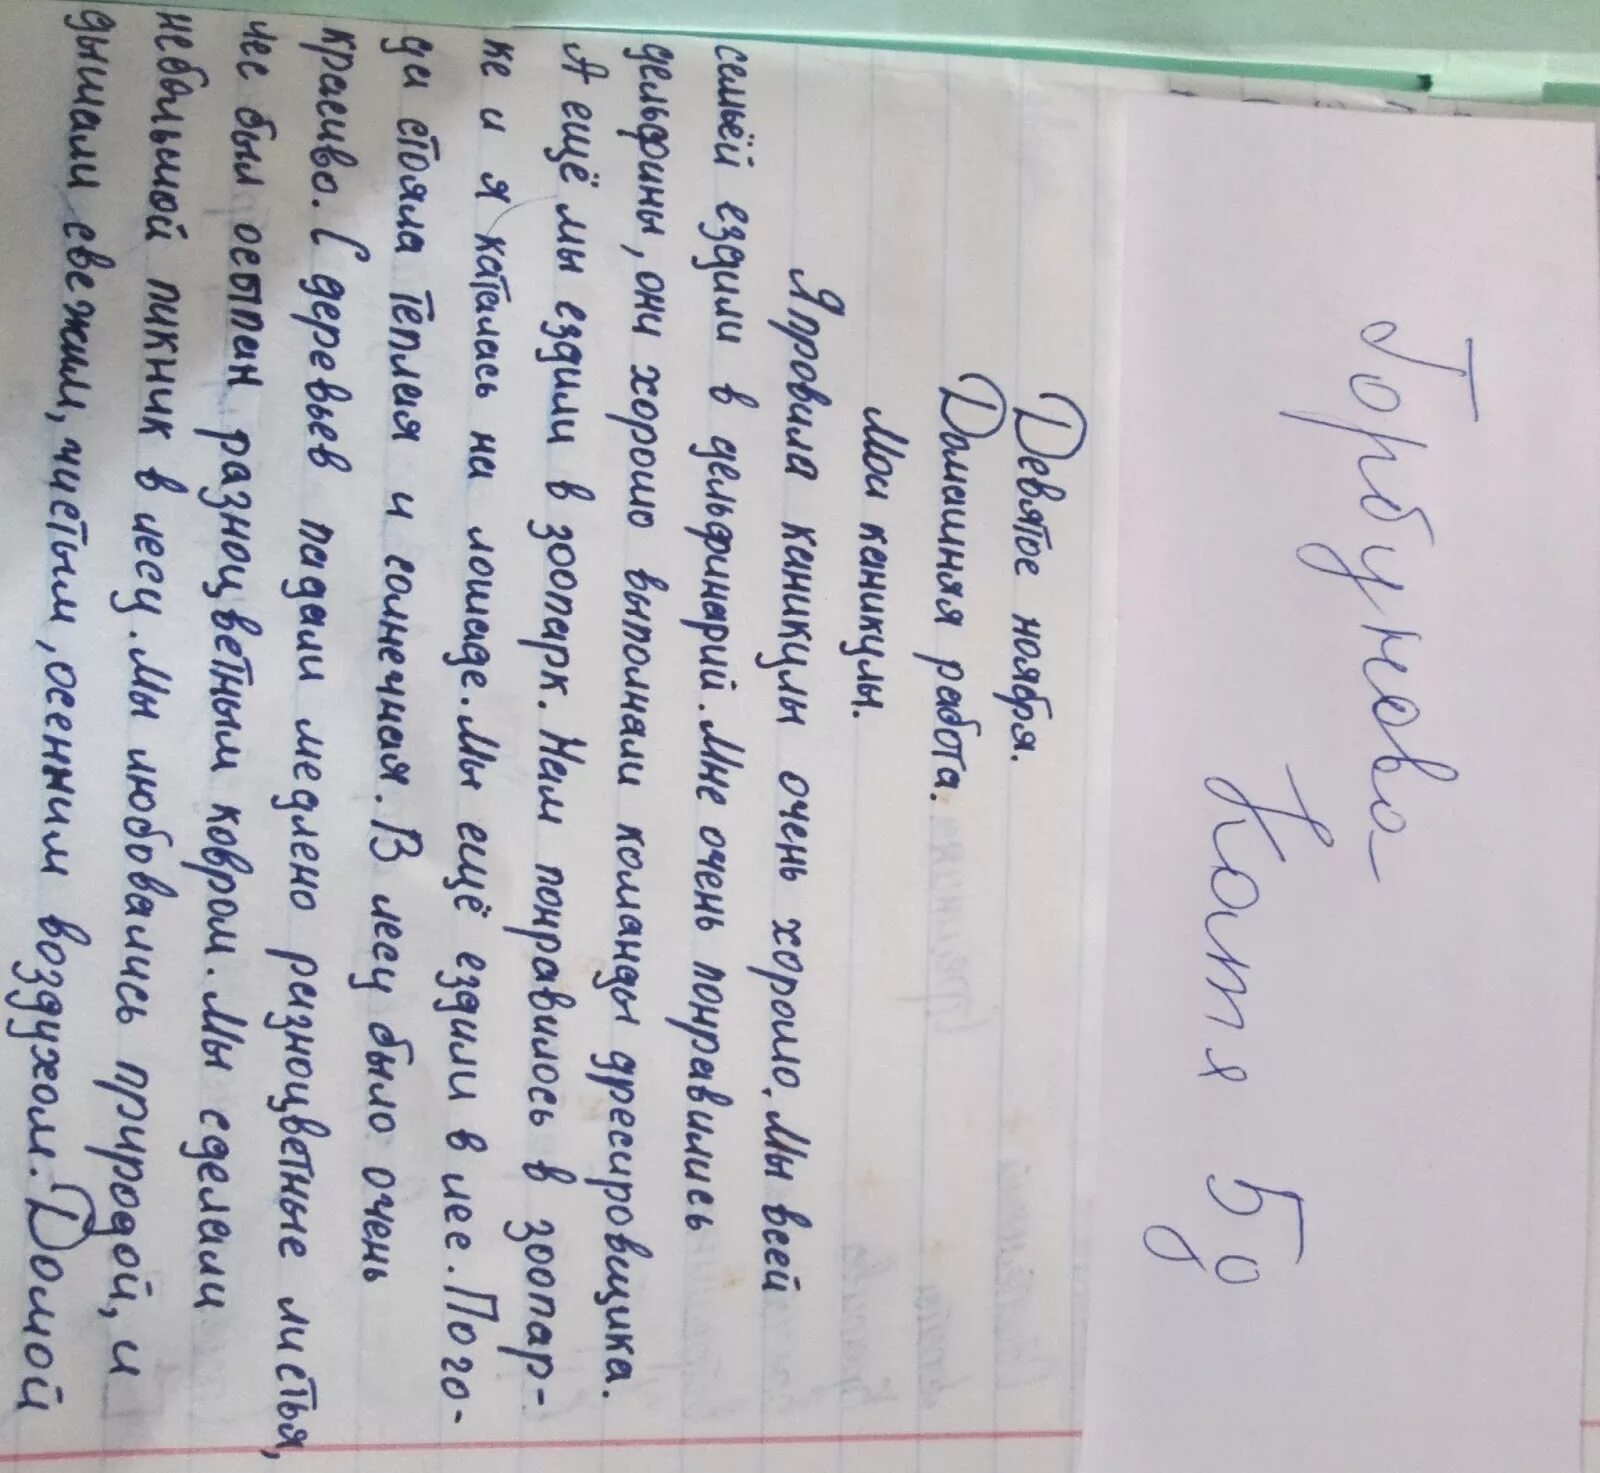 Горбунова
Катя 5д
Девятое ноября.
Домашняя работа.
Мои каникулы.
Я провила каникулы очень хорошо. Мы всей
семьёй ездили в дельфинарий. Мне очень понравились
дельфины, они хорошо выполняли команды дресировщика.
А ещё мы ездили в зоопарк. Нам понравилось в зоопар-
ке и я каталась на лошаде. Мы ещё ездили в лес. Пого-
да стояла тёплая и солнечная. В лесу было очень
красиво. С деревьев падали медлено разноцветные листья,
лес был осыпан разноцветным ковром. Мы сделали
небольшой пикник в лесу. Мы любовались природой, и
дышали свежим, чистым, осенним воздухом. Домой